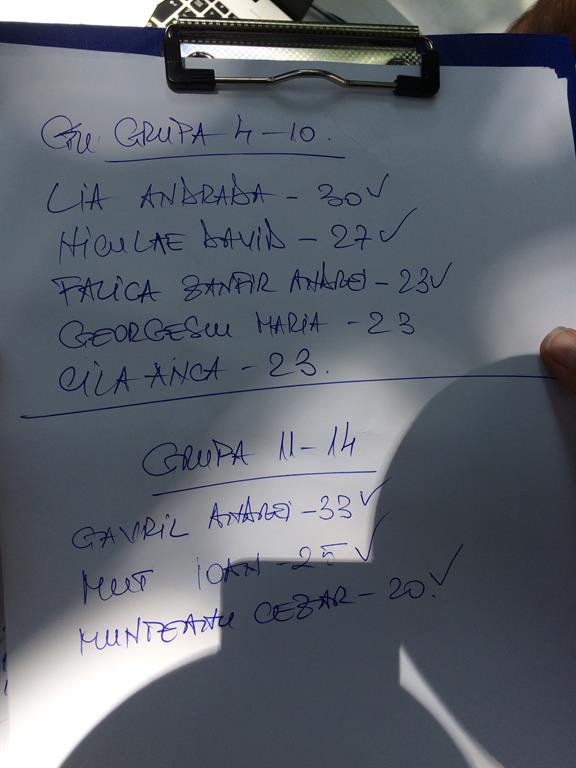 GRUPA 4-10.
LIA ANDRADA - 30 ✓
NICULAE DAVID - 27 ✓
FALICA ZANFIR ANDREI - 23 ✓
GEORGESCU MARIA - 23
CILA ANCA - 23.
GRUPA 11-14
GAVRIL ANDREI - 33 ✓
MUT IOAN - 25 ✓
MUNTEANU CEZAR - 20. ✓